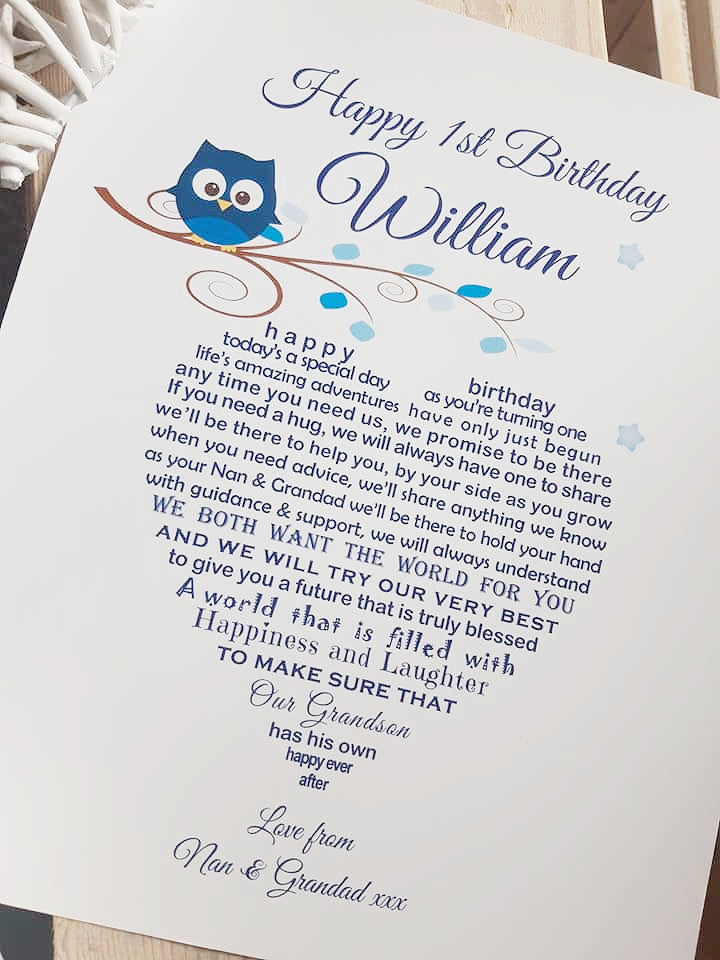 Happy 1st Birthday
William
happy birthday
today's a special day as you're turning one
life's amazing adventures have only just begun
any time you need us, we promise to be there
If you need a hug, we will always have one to share
we'll be there to help you, by your side as you grow
when you need advice, we'll share anything we know
as your Nan & Grandad we'll be there to hold your hand
with guidance & support, we will always understand
WE BOTH WANT THE WORLD FOR YOU
AND WE WILL TRY OUR VERY BEST
to give you a future that is truly blessed
A world that is filled with
Happiness and Laughter
TO MAKE SURE THAT
Our Grandson
has his own
happy ever
after
Love from
Nan & Grandad xxx